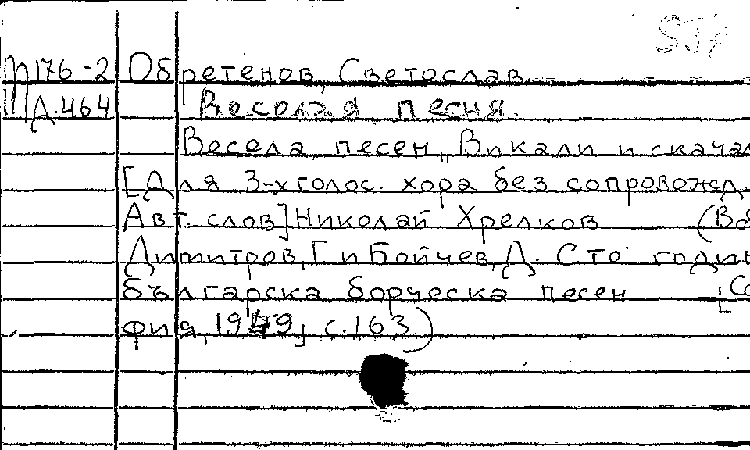 П176-2 Обретенов, Светослав
Д.464 Веселая песня.
Весела песен „Викали и скачал
[Для 3-х голос. хора без сопровожд.
Авт. слов] Николай Хрелков (В
Димитров, Г. и Бойчев, Д. Сто годин
българска борческа песен [Со
фия, 1949, с. 163)